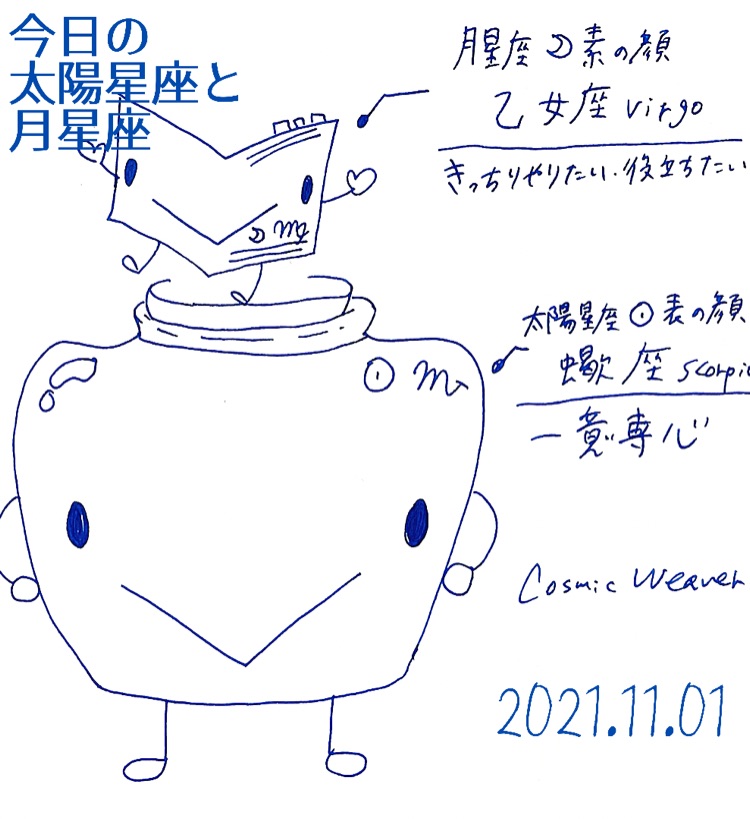 今日の
太陽星座と
月星座
月星座☽素の顔
乙女座 virgo
きっちりやりたい・役立ちたい
☽♍
太陽星座☉表の顔
蠍座 scorpio
☉♏
一意専心
Cosmic Weaver
2021.11.01